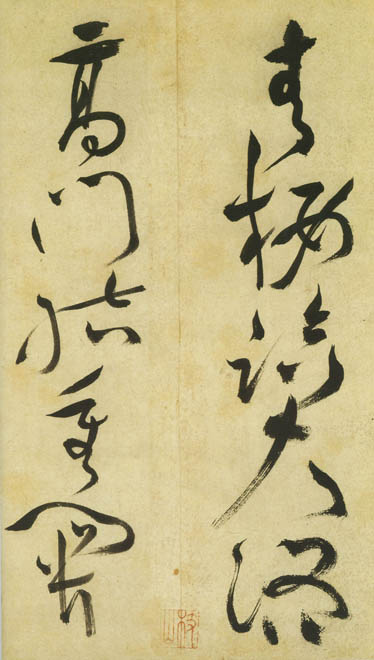 青樓臨大路
高門結重關
枝山